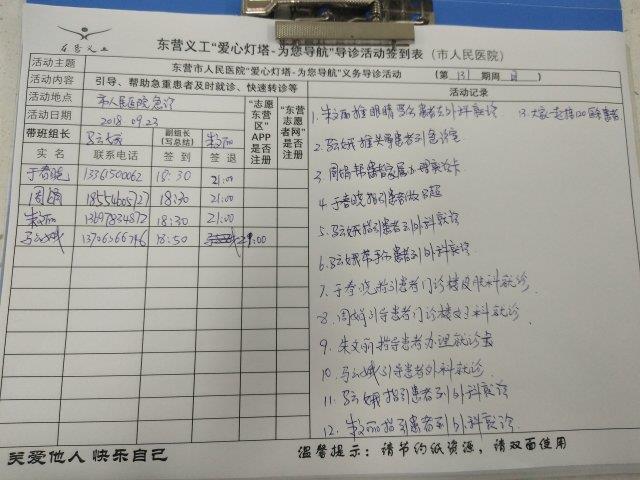 东营义工
东营义工“爱心灯塔-为您导航”导诊活动签到表（市人民医院）
活动主题 东营市人民医院“爱心灯塔-为您导航”义务导诊活动 （第 131 期周日）
活动内容 引导、帮助急重患者及时就诊、快速转诊等
活动地点 市人民医院急诊
活动日期 2018.09.23
带班组长 马云娥 副组长（写总结） 朱文丽
“志愿东营区”APP是否注册
“东营志愿者网”是否注册
活动记录
实名 联系电话 签到 签退
于春晓 13341500062 18:30 21:00
周娟 18554605727 18:30 21:00
朱文丽 13697834872 18:30 21:00
马云娥 13706366746 18:50 21:00
1. 朱文丽推眼睛患者去外科就诊
2. 马云娥推患者到急诊室
3. 周娟帮患者家属办理就诊卡
4. 于春晓指引患者做B超
5. 马云娥指引患者到外科就诊
6. 马云娥患者到外科就诊
7. 于春晓指引患者门诊楼皮肤科就诊
8. 周娟引导患者门诊楼就诊
9. 朱文丽指导患者办理就诊卡
10. 马云娥引导患者外科就诊
11. 马云娥指引患者到外科就诊
12. 朱文丽指引患者到外科就诊
13. 大家一起接120患者
关爱他人 快乐自己
温馨提示：请节约纸资源，请双面使用